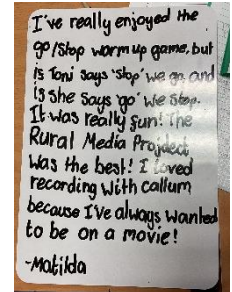 I've really enjoyed the
go/stop warm up game, but
is Toni says 'stop' we go and
is she says 'go' we stop.
It was really fun! The
Rural Media Projdect
was the best! I loved
recording with callum
because I've always wanted
to be on a movie!
-Matilda